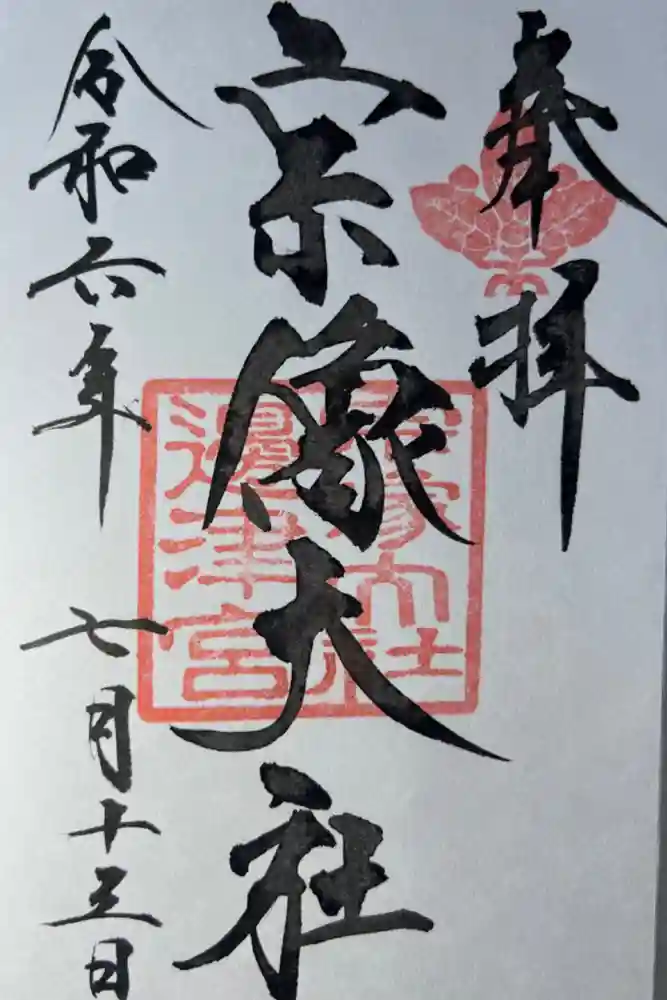 奉拝
宗像大社
宗像大社
邊津宮
令和六年
七月十三日